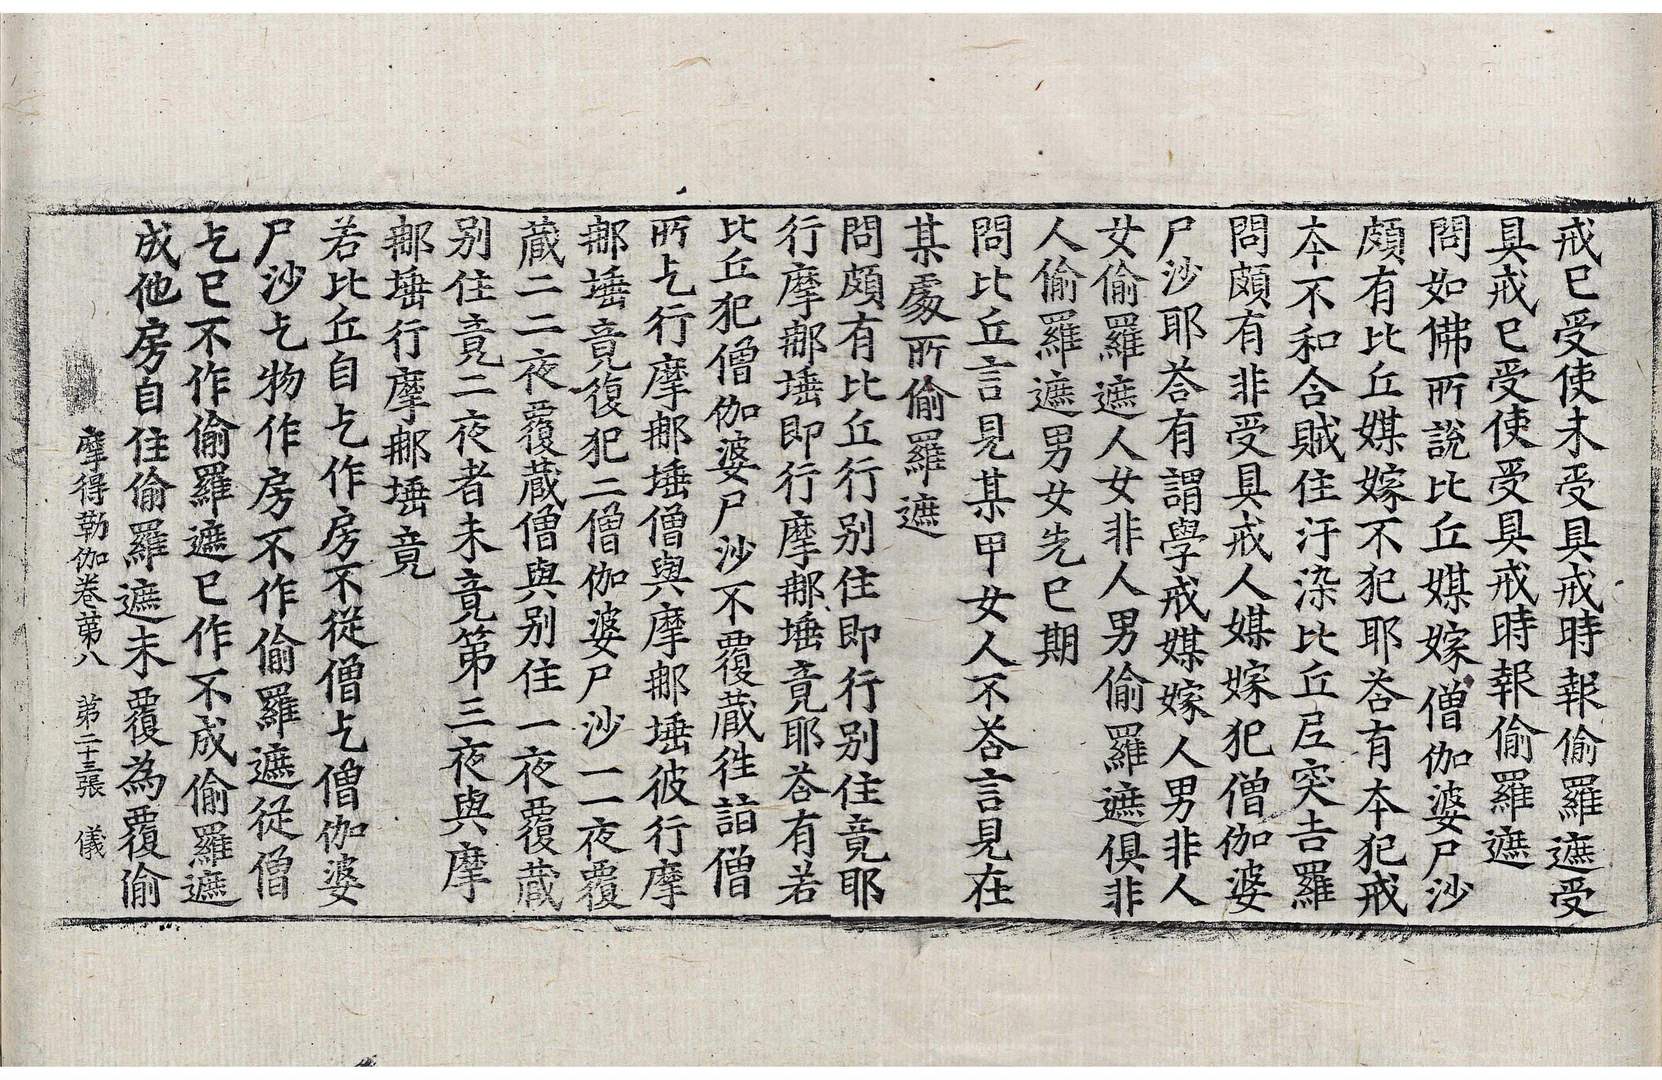 戒已受使未受具戒時報偷羅遮受
具戒已受使受具戒時報偷羅遮
問如佛所說比丘媒嫁僧伽婆尸沙
頗有比丘媒嫁不犯耶荅有夲犯戒
夲不和合賊住汙染比丘㞐突吉羅
問頗有非受具戒人媒嫁犯僧伽婆
尸沙耶荅有謂學戒媒嫁人男非人
女偷羅遮人女非人男偷羅遮俱非
人偷羅遮男女先已期
問比丘言見某甲女人不荅言見在
某處所偷羅遮
問頗有比丘行别住即行别住竟耶
行摩那埵即行摩那埵竟耶荅有若
比丘犯僧伽婆尸沙不覆藏徃詣僧
所乞行摩那埵僧與摩那埵彼行摩
那埵竟復犯二僧伽婆尸沙一一夜覆
藏二二夜覆藏僧與别住一夜覆藏
别住竟二夜者未竟第三夜與摩
那埵行摩那埵竟
若比丘自乞作房不從僧乞僧伽婆
尸沙乞物作房不作偷羅遮從僧
乞已不作偷羅遮已作不成偷羅遮
成他房自住偷羅遮未覆為覆偷
摩得勒伽卷第八　第二十三張　儀